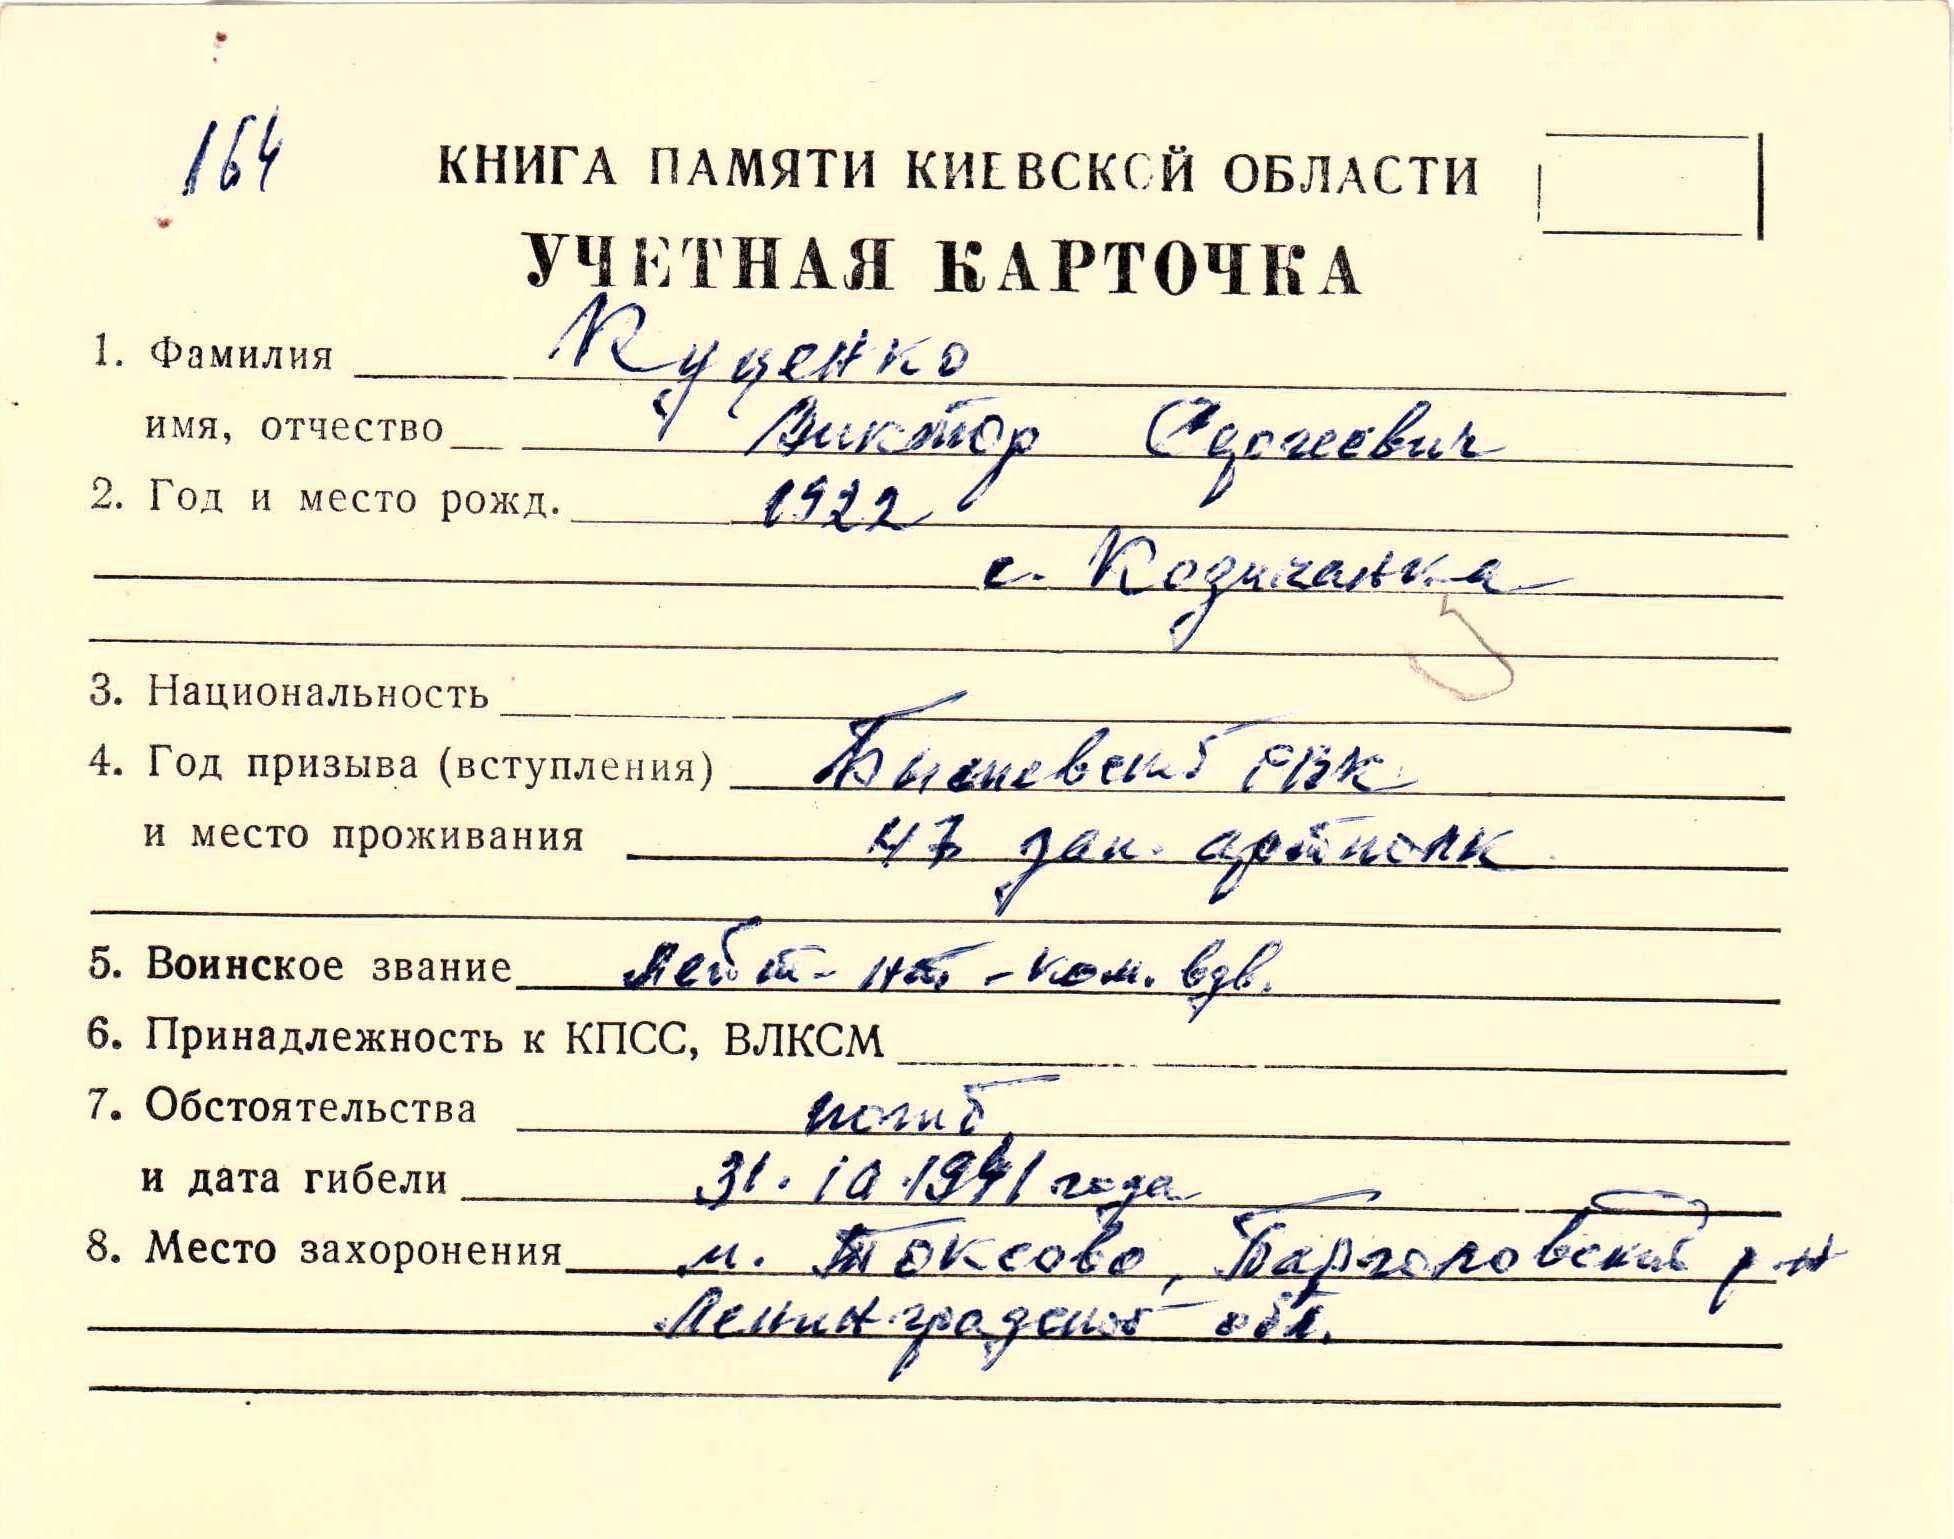 164
КНИГА ПАМЯТИ КИЕВСКОЙ ОБЛАСТИ
УЧЕТНАЯ КАРТОЧКА
1. Фамилия Куценко
имя, отчество Виктор Сергеевич
2. Год и место рожд. 1922
с. Козичанка
3. Национальность
4. Год призыва (вступления) РВК
и место проживания 47 зап. артполк
5. Воинское звание Лейт-нт - ком. вдв.
6. Принадлежность к КПСС, ВЛКСМ
7. Обстоятельства погиб
и дата гибели 31.10.1941 года
8. Место захоронения м. Токсово, р-н
Ленинградской обл.